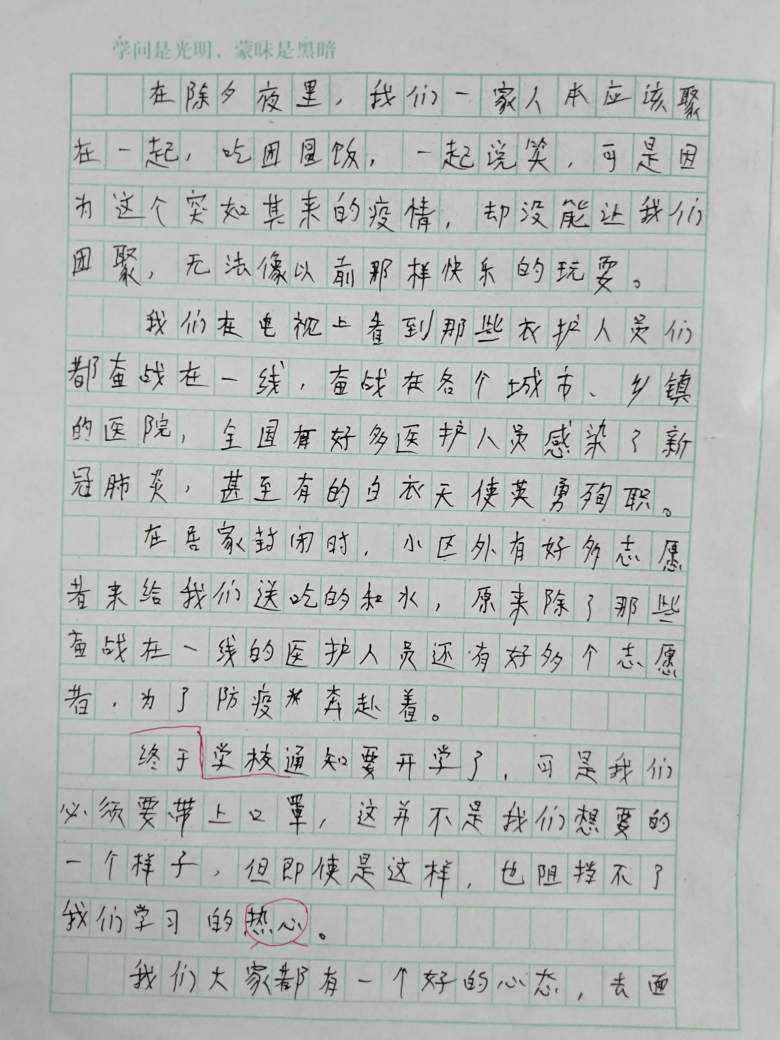 学问是光明，蒙昧是黑暗
在除夕夜里，我们一家人本应该聚
在一起，吃团圆饭，一起说笑，可是因
为这个突如其来的疫情，却没能让我们
团聚，无法像以前那样快乐的玩耍。
我们在电视上看到那些衣护人员们
都奋战在一线，奋战在各个城市、乡镇
的医院，全国有好多医护人员感染了新
冠肺炎，甚至有的白衣天使英勇殉职。
在居家封闭时，小区外有好多志愿
者来给我们送吃的和水，原来除了那些
奋战在一线的医护人员还有好多个志愿
者，为了防疫奔赴着。
终于学校通知要开学了，可是我们
必须要带上口罩，这并不是我们想要的
一个样子，但即使是这样，也阻挡不了
我们学习的热心。
我们大家都有一个好的心态，去面